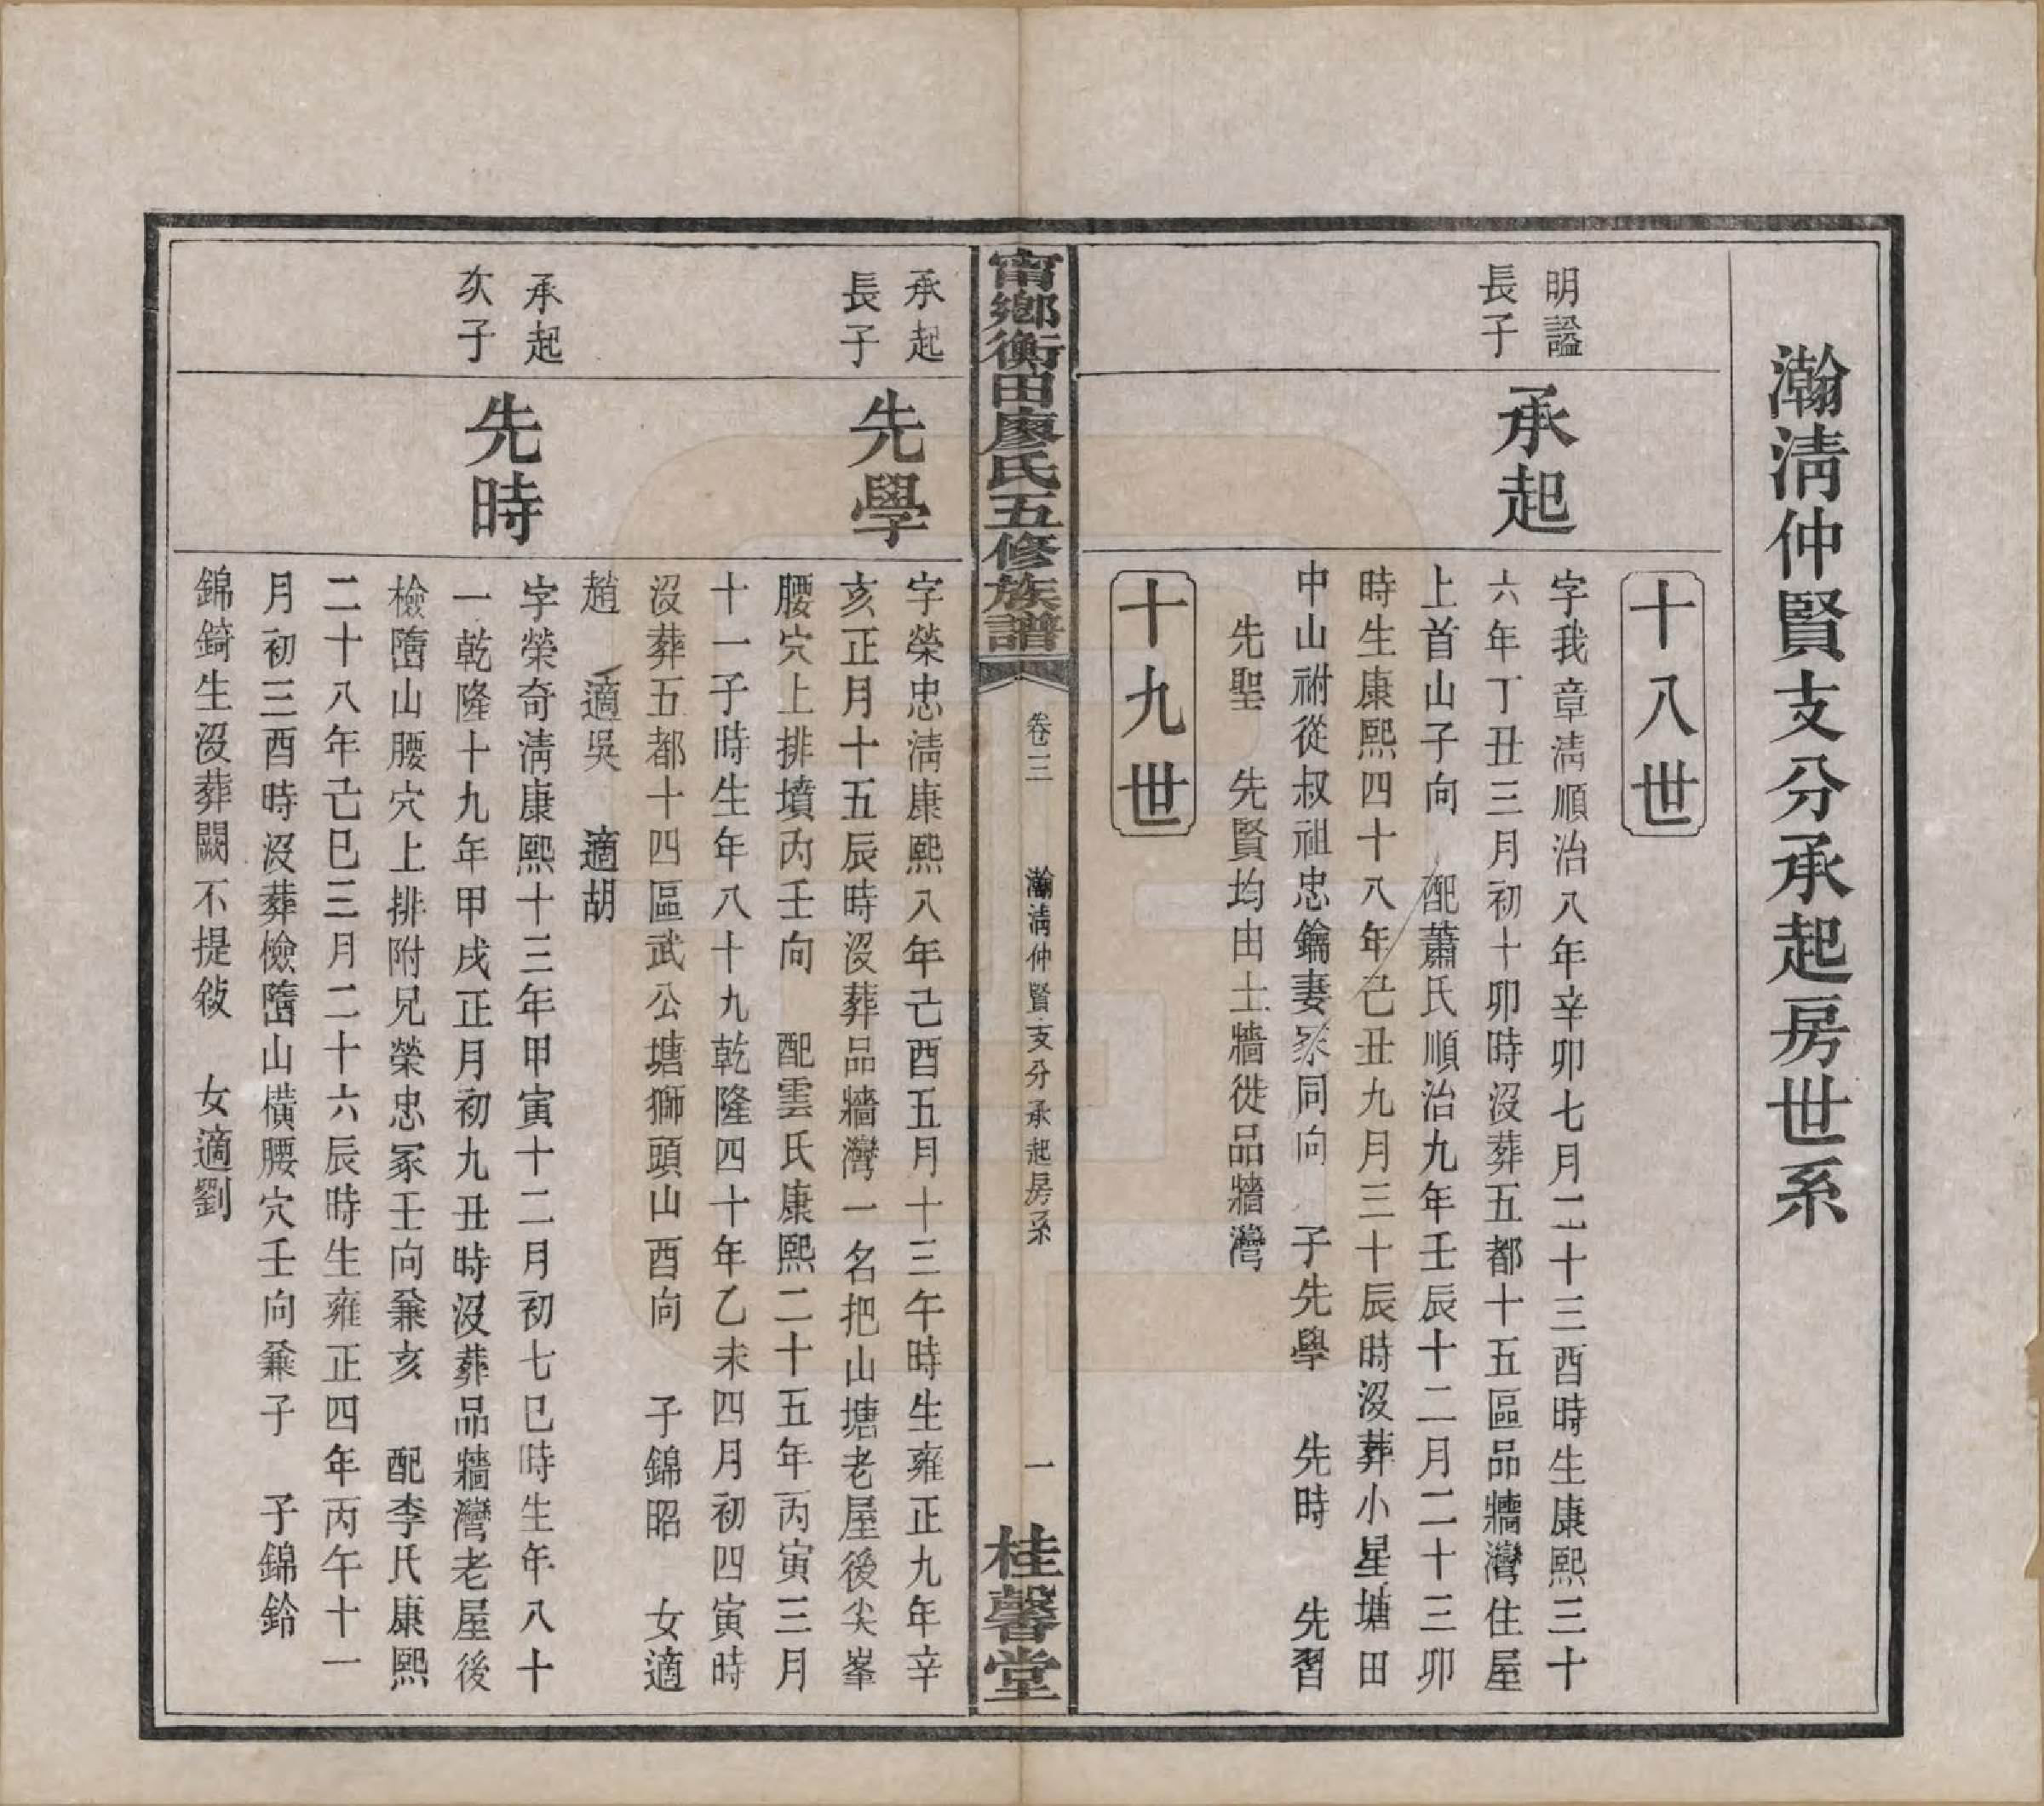 瀚淸仲賢支分承起房世系
十八世
明謚
長子
承起
字我章淸順治八年辛卯七月二十三酉時生康熙三十
六年丁丑三月初十卯時沒葬五都十五區品牆灣住屋
上首山子向 配蕭氏順治九年壬辰十二月二十三卯
時生康熙四十八年己丑九月三十辰時沒葬小星塘田
中山祔從叔祖忠鑰妻冢同向 子先學 先時 先習
先聖 先賢均由土牆徙品牆灣
十九世
甯鄉衡田廖氏五修族譜
卷三
瀚淸仲賢支分承起房系
一
桂馨堂
承起
長子
先學
字榮忠淸康熙八年己酉五月十三午時生雍正九年辛
亥正月十五辰時沒葬品牆灣一名把山塘老屋後尖峯
腰穴上排墳丙壬向 配雲氏康熙二十五年丙寅三月
十一子時生年八十九乾隆四十年乙未四月初四寅時
沒葬五都十四區武公塘獅頭山酉向 子錦昭 女適
趙 適吳 適胡
承起
次子
先時
字榮奇淸康熙十三年甲寅十二月初七巳時生年八十
一乾隆十九年甲戌正月初九丑時沒葬品牆灣老屋後
檢墮山腰穴上排附兄榮忠冢壬向兼亥 配李氏康熙
二十八年己巳三月二十六辰時生雍正四年丙午十一
月初三酉時沒葬檢墮山橫腰穴壬向兼子 子錦鈴
錦錡生沒葬闕不提敍 女適劉